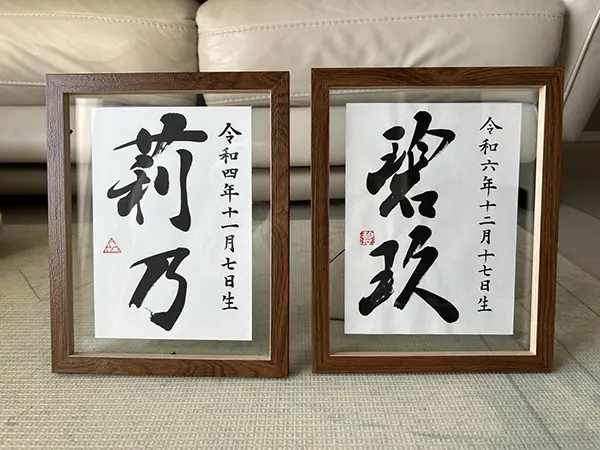 令和四年十一月七日生
莉乃
令和六年十二月十七日生
碧玖